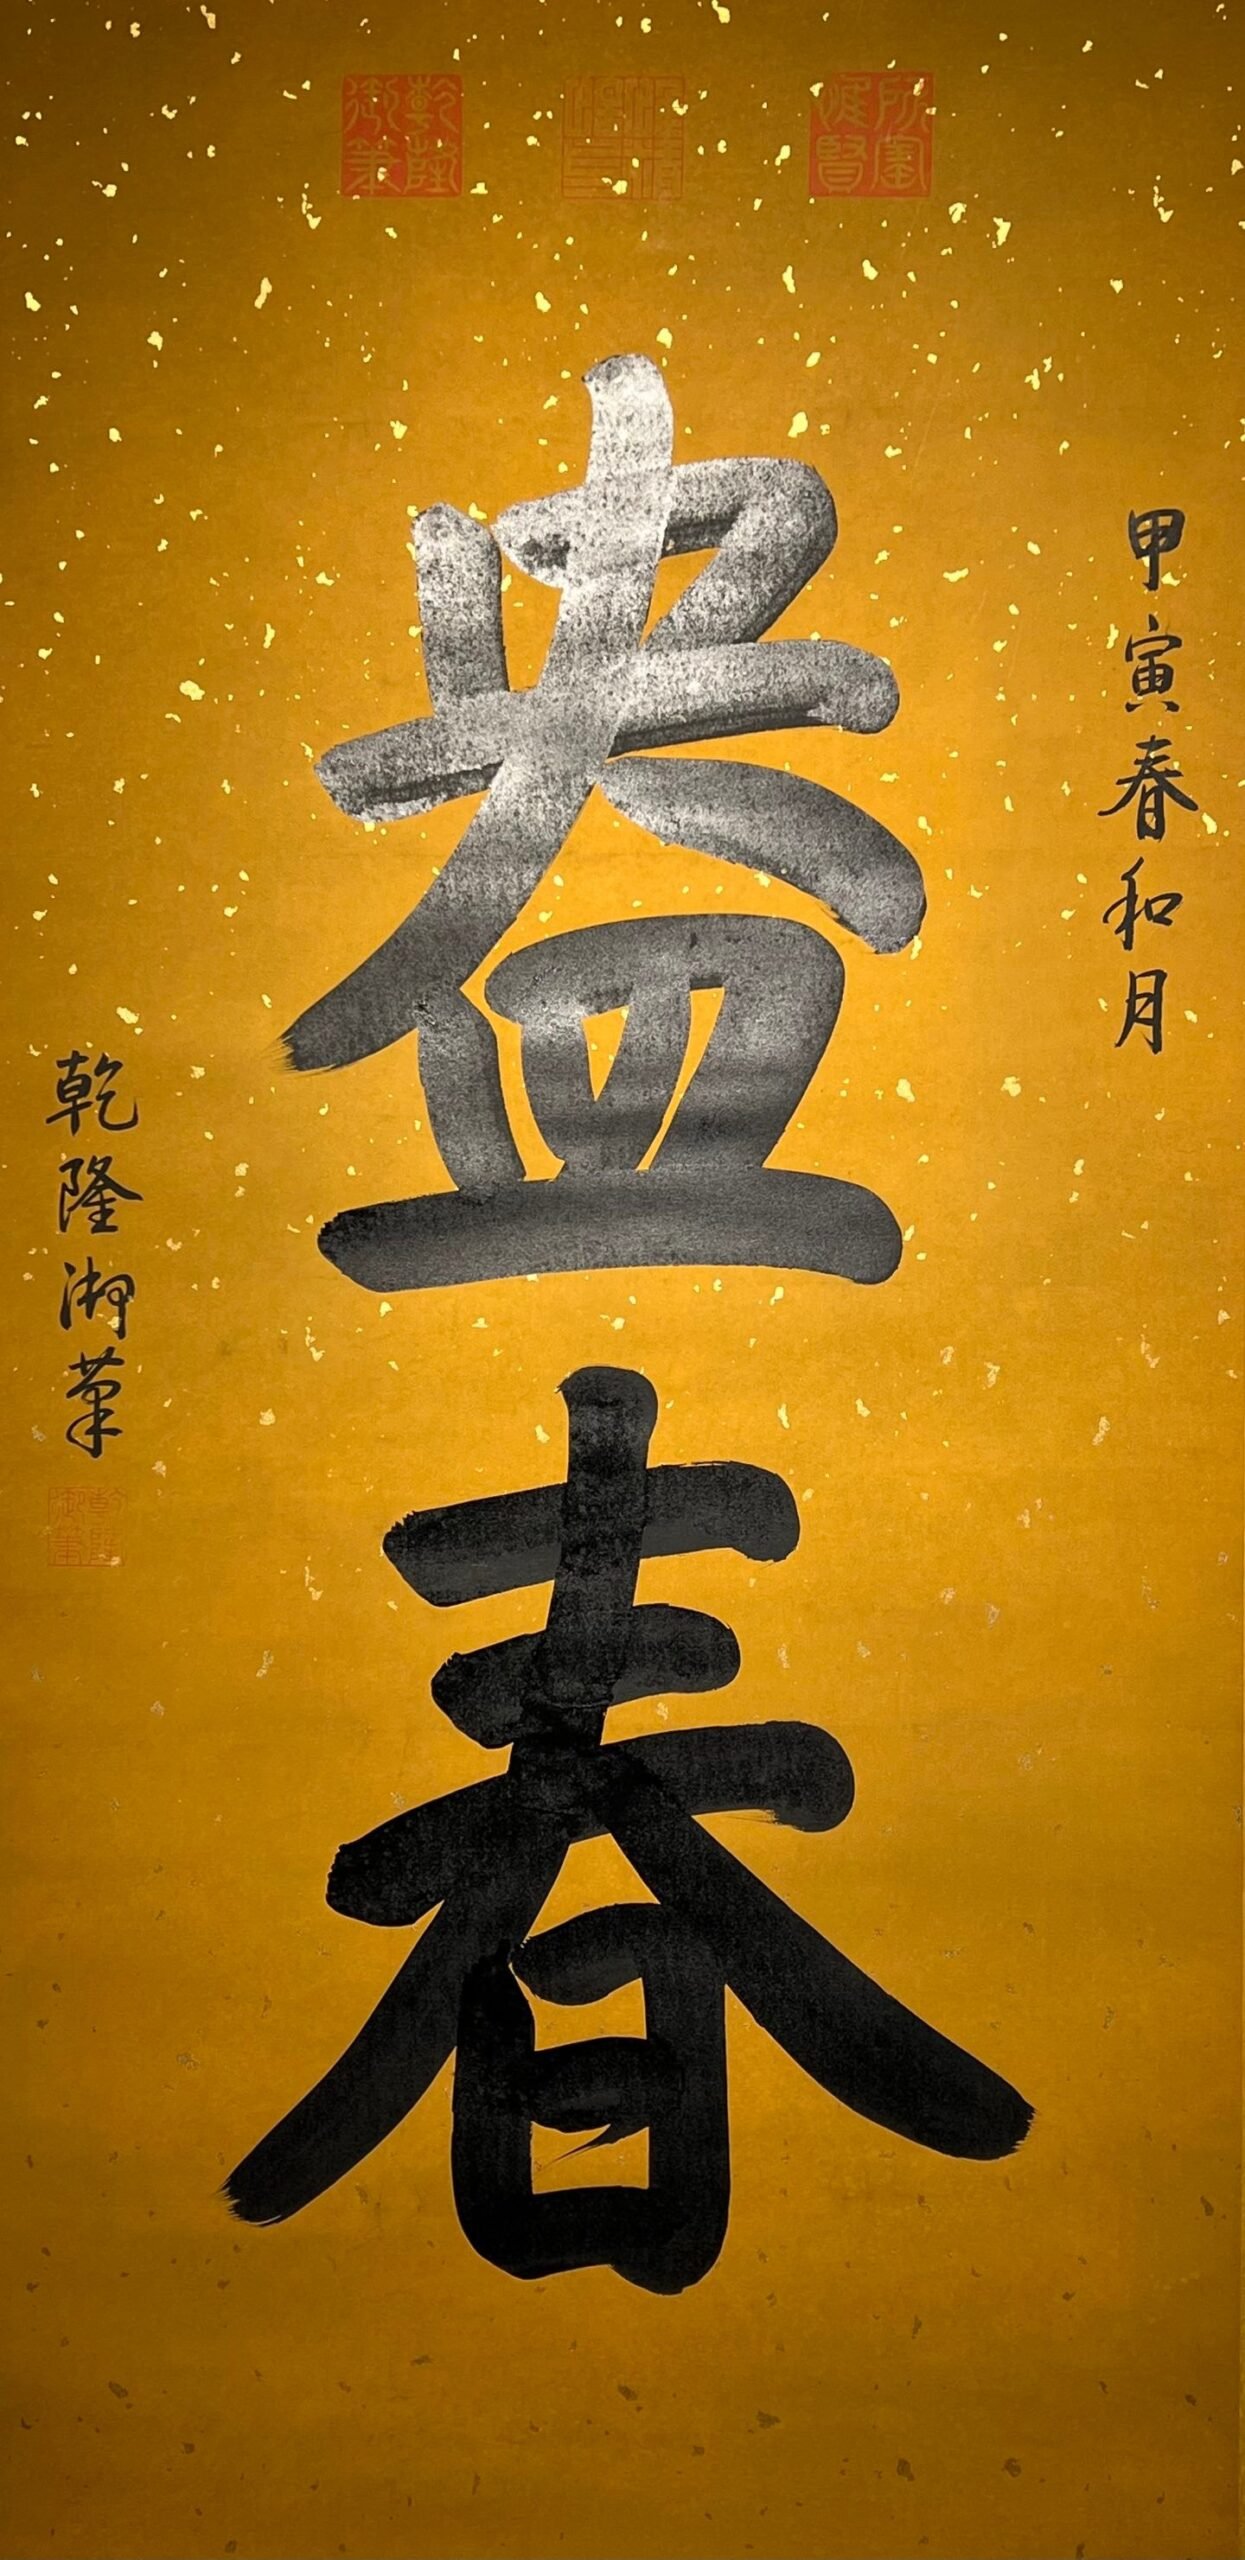 所寶惟賢
乾隆御筆
甲寅春和月
盎春
乾隆御筆
乾隆御筆